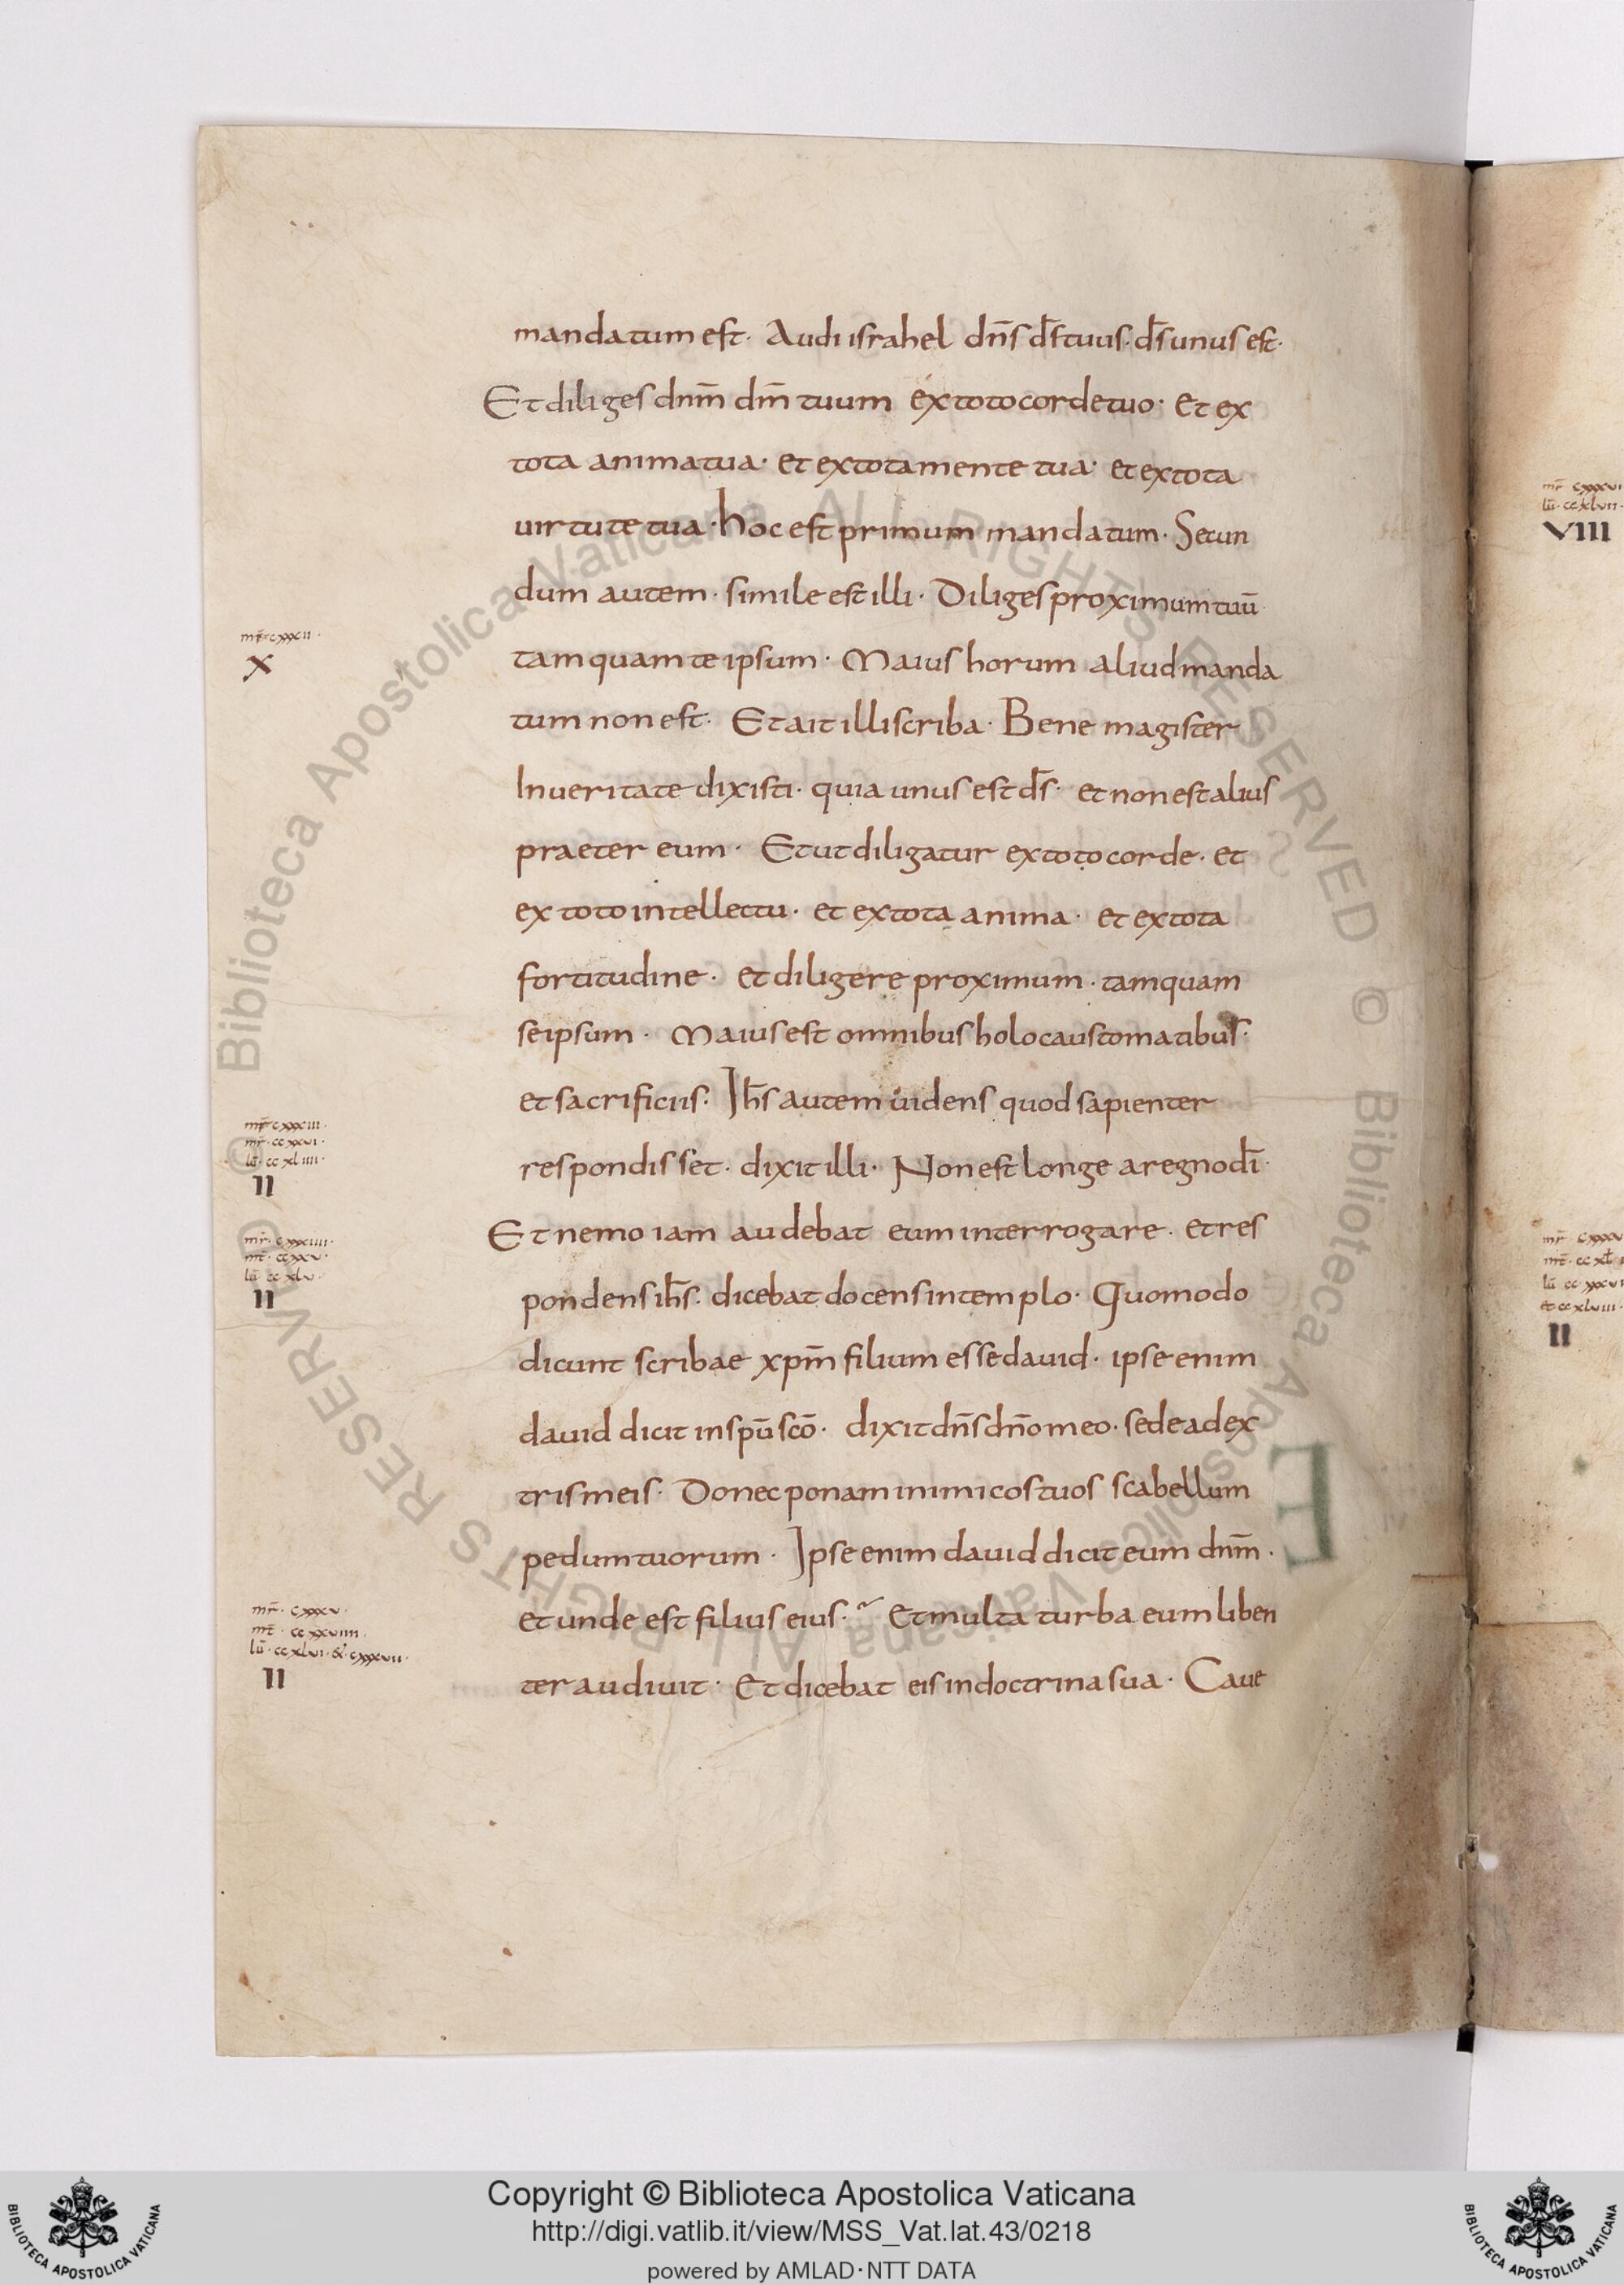 mandatum est· Audi israhel dn̄s d̄s tuus· d̄s unus est·
Et diliges dnm̄ dm̄ tuum ex toto corde tuo· et ex
tota anima tua· et ex tota mente tua· et ex tota
uirtute tua· hoc est primum mandatum· Secun
dum autem· simile est illi· Diliges proximum tuū
tamquam te ipsum· Maius horum aliud manda
tum non est· Et ait illi scriba· Bene magister
In ueritate dixisti· quia unus est d̄s· et non est alius
praeter eum· Et ut diligatur ex toto corde· et
ex toto intellectu· et ex tota anima· et ex tota
fortitudine· et diligere proximum· tamquam
se ipsum· Maius est omnibus holocaustomatibus·
et sacrificiis· Ih̄s autem uidens quod sapienter
respondisset· dixit illi· Non est longe a regno dī·
Et nemo iam audebat eum interrogare· et res
pondens ih̄s· dicebat docens in templo· Quomodo
dicunt scribae xpm̄ filium esse dauid· ipse enim
dauid dicit in spū scō· dixit dn̄s dn̄o meo· sede a dex
tris meis· Donec ponam inimicos tuos scabellum
pedum tuorum· Ipse enim dauid dicit eum dnm̄·
et unde est filius eius· Et multa turba eum liben
ter audiuit· Et dicebat eis in doctrina sua· Caue
mr̄ cxxxii·
X
mr̄ cxxxiii·
lū· cc xliiii·
II
mr̄· cxxxiiii·
mt̄· ccxxv·
lū· cc xlv·
II
mr̄· cxxxv·
mt̄· cc xxviiii·
lū· cc xlvi· & cxxxvii·
II
VIII
II
© Biblioteca Apostolica Vaticana ALL RIGHTS RESERVED
© Biblioteca Apostolica Vaticana ALL RIGHTS RESERVED
Copyright © Biblioteca Apostolica Vaticana
http://digi.vatlib.it/view/MSS_Vat.lat.43/0218
powered by AMLAD·NTT DATA
BIBLIOTECA APOSTOLICA VATICANA
BIBLIOTECA APOSTOLICA VATICANA